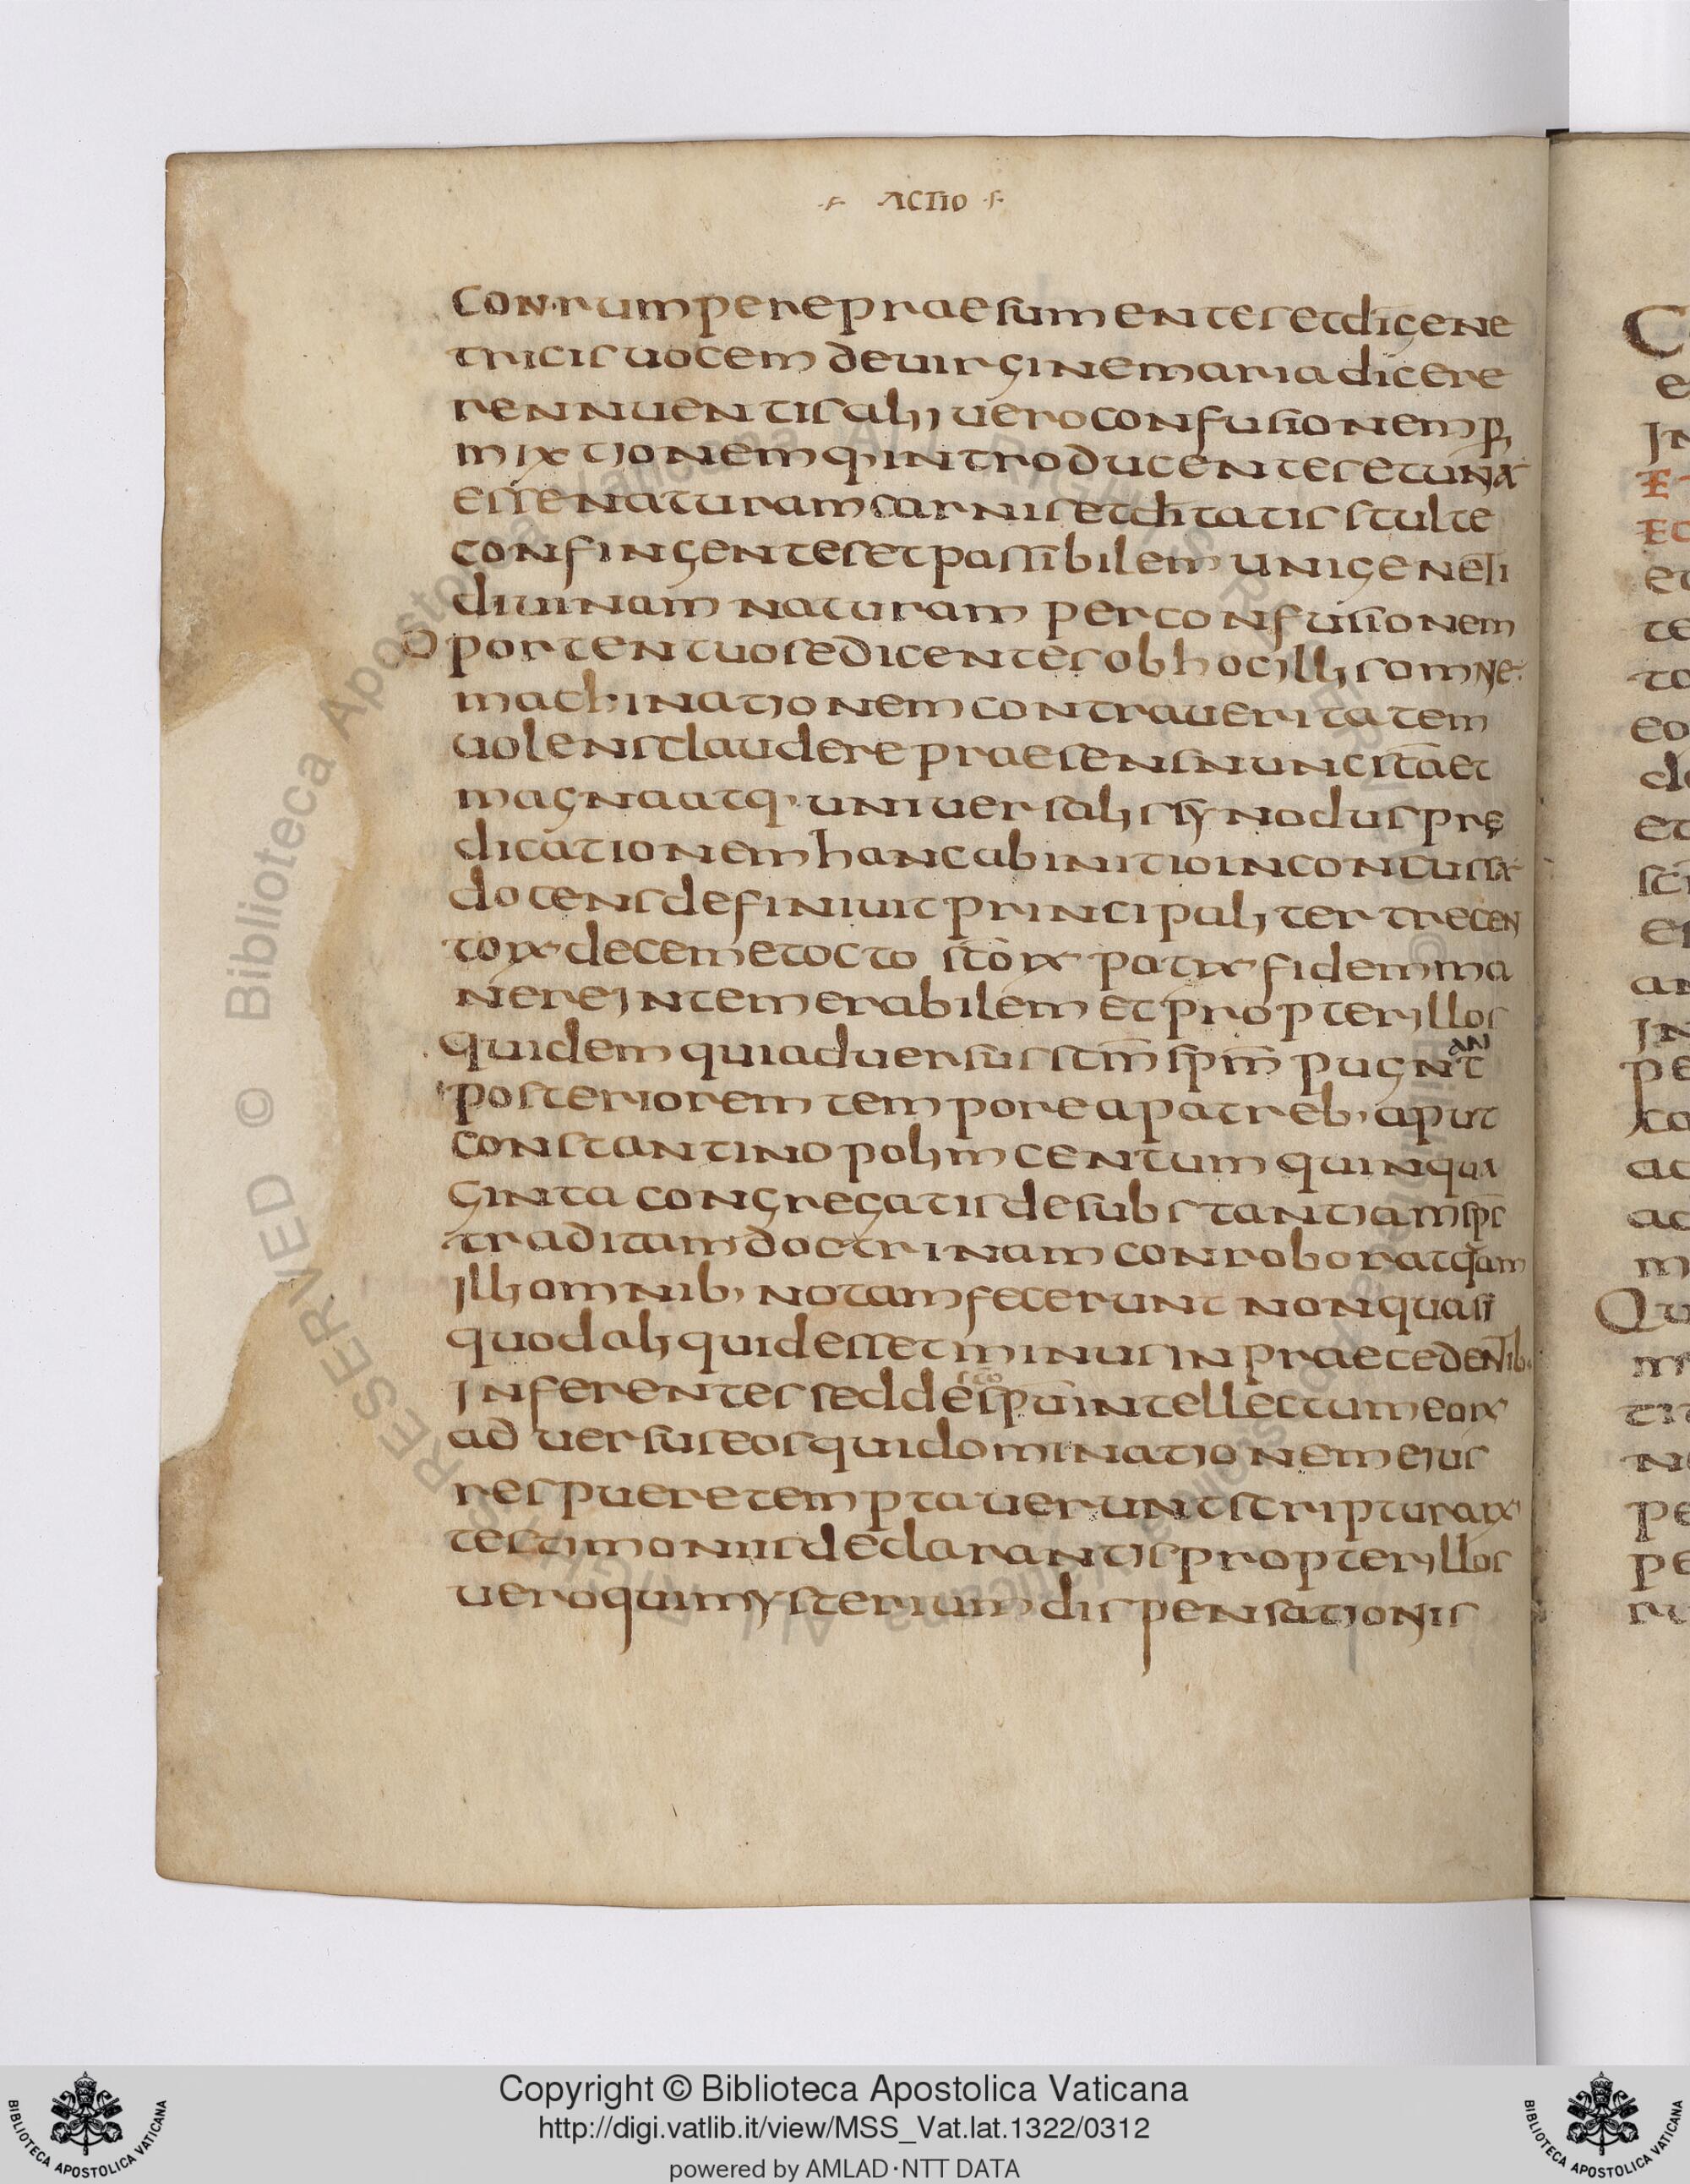 ·F· ACTIO ·F·
conrumpere praesumentes et dī gene
tricis uocem de uirgine maria dicere
rennuentis alii uero confusionem p̱
mixtionemq· introducentes et unā
esse naturam carnis et dītatis stulte
confingentes et passibilem unigeneti
diuinam naturam per confusionem
portentuose dicentes ob hoc illis omne
machinationem contra ueritatem
uolens claudere praesens nunc scā et
magna atq· uniuersalis synodus prę
dicationem hanc ab initio inconcussā
docens definiuit principaliter trecen
torꝝ decem et octo scōrꝝ patrꝝ fidem ma
nere intemerabilem et propter illos
quidem qui aduersus scm̄ spm̄ pugnant
posteriorem tempore a patrib· aput
constantinopolim centum quinqua
ginta congregatis de substantiam sps̄
traditam doctrinam conroborat quam
illi omnib· notam fecerunt non quasi
quod aliquid esset minus in praecedentib·
inferentes sed de scō spū intellectum eorꝝ
aduersus eos qui dominationem eius
respuere temptauerunt scripturarꝝ
testimoniis declarantis propter illos
uero qui mysterium dispensationis
Copyright © Biblioteca Apostolica Vaticana
http://digi.vatlib.it/view/MSS_Vat.lat.1322/0312
powered by AMLAD·NTT DATA
BIBLIOTECA APOSTOLICA VATICANA
BIBLIOTECA APOSTOLICA VATICANA